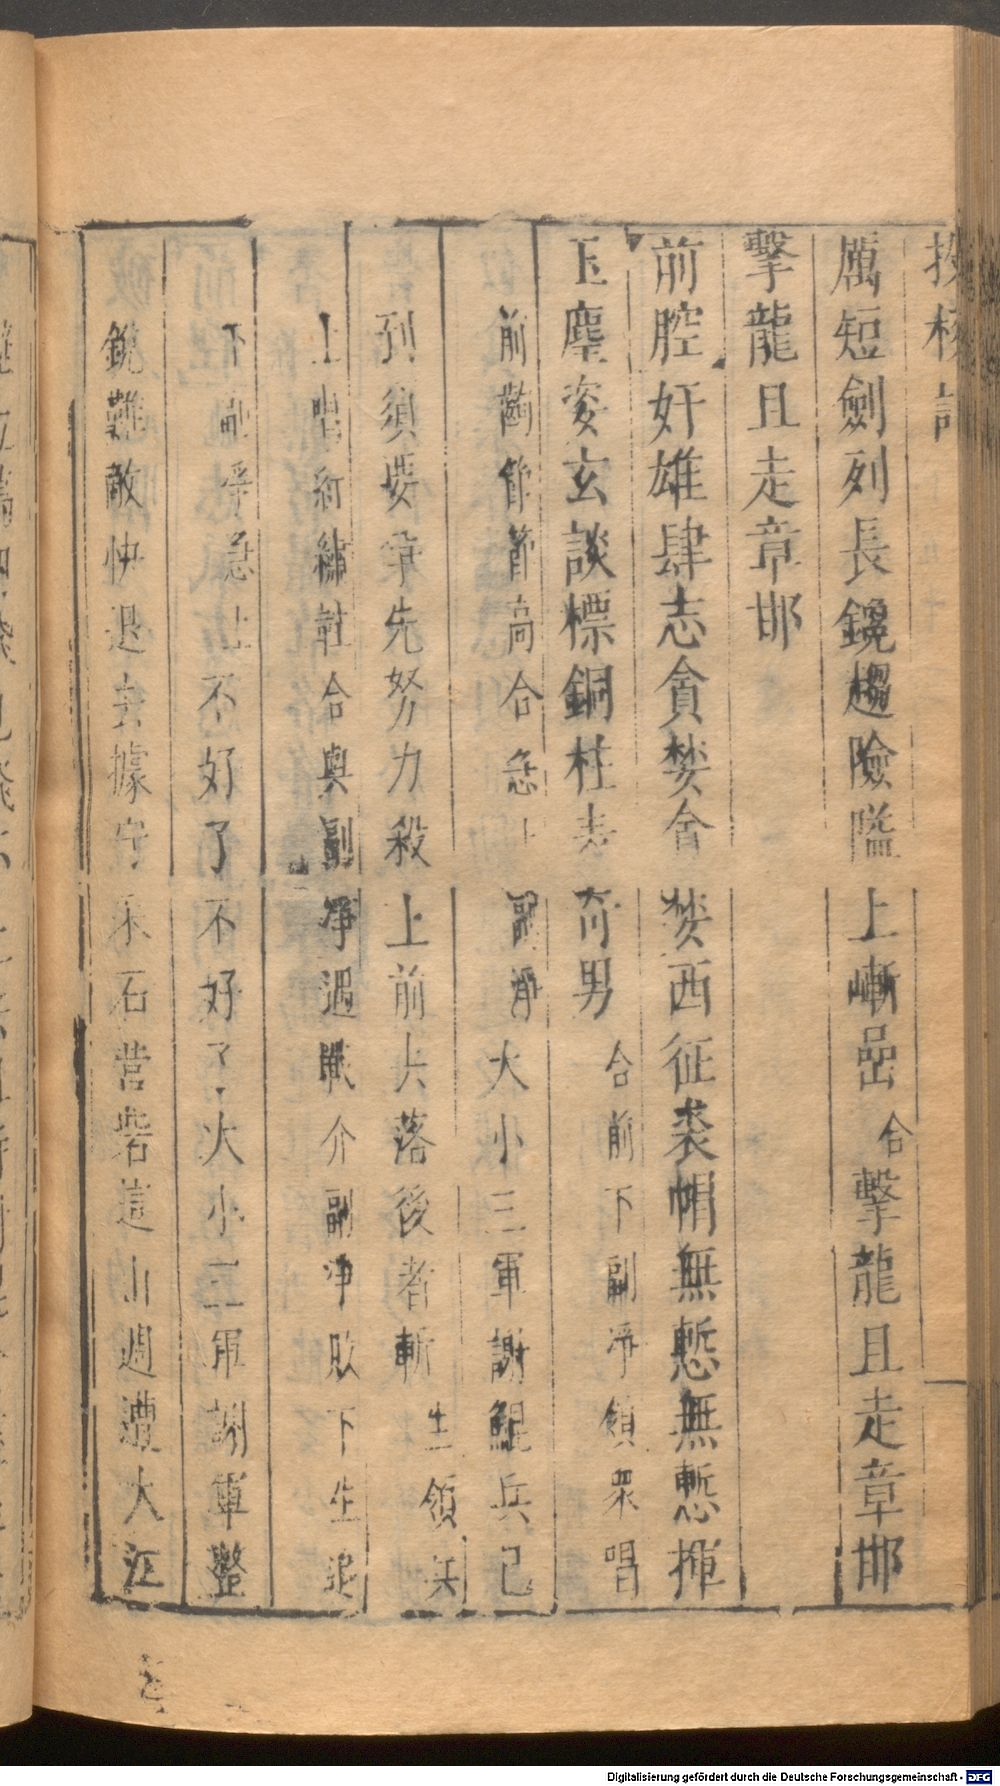 投梭記
厲短劍列長鑱趨險隘上嶃嵒合擊龍且走章邯
擊龍且走章邯
前腔奸雄肆志貪婪舍婪西征裘帽無慙無慙揮
玉麈姿玄談標銅柱表奇男合前下副淨領眾唱
前蔔管節高合急上副淨大小三軍謝鯤兵已
列須要爭先努力殺上前去落後者斬生領兵
上唱紅繡鞋合與副淨遇戰介副淨敗下生追
下副淨急上不好了不好了大小三軍謝軍整
銳難敵快退去據守采石營砦這山週遭大江
Digitalisierung gefördert durch die Deutsche Forschungsgemeinschaft - DFG